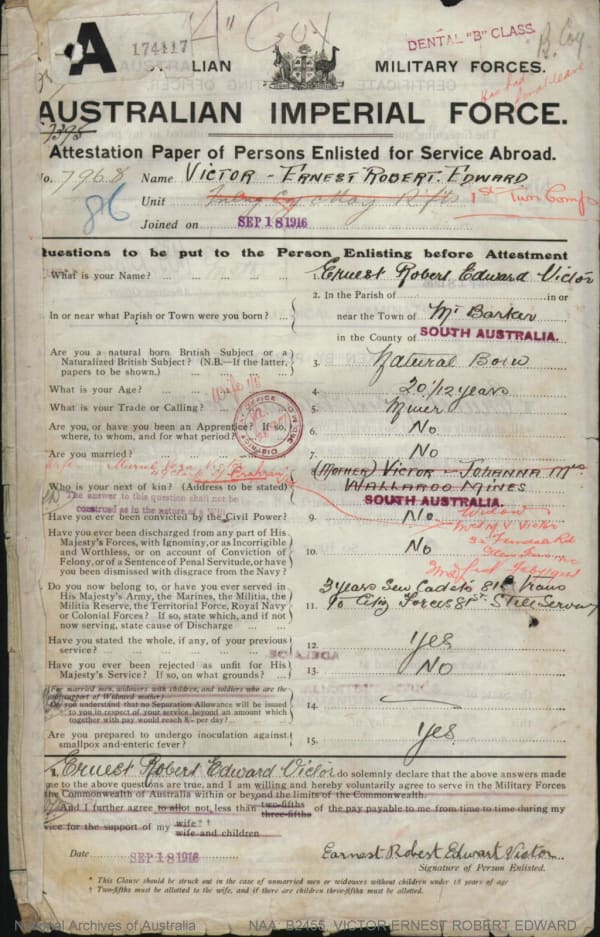 A
174117
"A" Coy
DENTAL "B" CLASS
B. Coy
LIAN MILITARY FORCES.
Has had final leave
AUSTRALIAN IMPERIAL FORCE.
7395
Attestation Paper of Persons Enlisted for Service Abroad.
No. 7968 Name VICTOR - ERNEST ROBERT. EDWARD
86 Unit 1st Tun Comp
Joined on SEP 18 1916
Questions to be put to the Person Enlisting before Attestment
What is your Name? ... 1. Ernest Robert Edward Victor
2. In the Parish of in or
In or near what Parish or Town were you born? ... near the Town of Mt Barker
in the County of SOUTH AUSTRALIA.
Are you a natural born British Subject or a
Naturalized British Subject? (N.B.—If the latter,
papers to be shown.) 3. Natural Born
What is your Age? 4. 20 1/12 years
What is your Trade or Calling? 5. Miner
Are you, or have you been an Apprentice? If so,
where, to whom, and for what period? 6. No
Are you married? 7. No
Who is your next of kin? (Address to be stated) (MOTHER) VICTOR - JOHANNA Mrs
WALLAROO MINES
SOUTH AUSTRALIA.
The answer to this question shall not be
construed as in the nature of a Will
Widow
Have you ever been convicted by the Civil Power? 9. No
Have you ever been discharged from any part of His
Majesty's Forces, with Ignominy, or as Incorrigible
and Worthless, or on account of Conviction of
Felony, or of a Sentence of Penal Servitude, or have
you been dismissed with disgrace from the Navy? 10. No
Do you now belong to, or have you ever served in
His Majesty's Army, the Marines, the Militia, the
Militia Reserve, the Territorial Force, Royal Navy
or Colonial Forces? If so, state which, and if not
now serving, state cause of Discharge 11. 3 years Sen Cadets 81st Trans
To Citz Forces 81st Still Serving
Have you stated the whole, if any, of your previous
service? 12. Yes
Have you ever been rejected as unfit for His
Majesty's Service? If so, on what grounds? 13. No
(For married men, widowers with children, and soldiers who are the
sole support of Widowed mother)
Do you understand that no Separation Allowance will be issued
to you in respect of your service beyond an amount which
together with pay would reach 8/- per day? 14.
Are you prepared to undergo inoculation against
smallpox and enteric fever? 15. Yes
I, Ernest Robert Edward Victor do solemnly declare that the above answers made
me to the above questions are true, and I am willing and hereby voluntarily agree to serve in the Military Forces
the Commonwealth of Australia within or beyond the limits of the Commonwealth.
And I further agree to allot not less than two-fifths three-fifths of the pay payable to me from time to time during my
vice for the support of my wife* † wife and children
Date SEP 18 1916 Earnest Robert Edwart Victor
Signature of Person Enlisted.
* This Clause should be struck out in the case of unmarried men or widowers without children under 18 years of age
† Two-fifths must be allotted to the wife, and if there are children three-fifths must be allotted.
National Archives of Australia NAA: B2455, VICTOR ERNEST ROBERT EDWARD